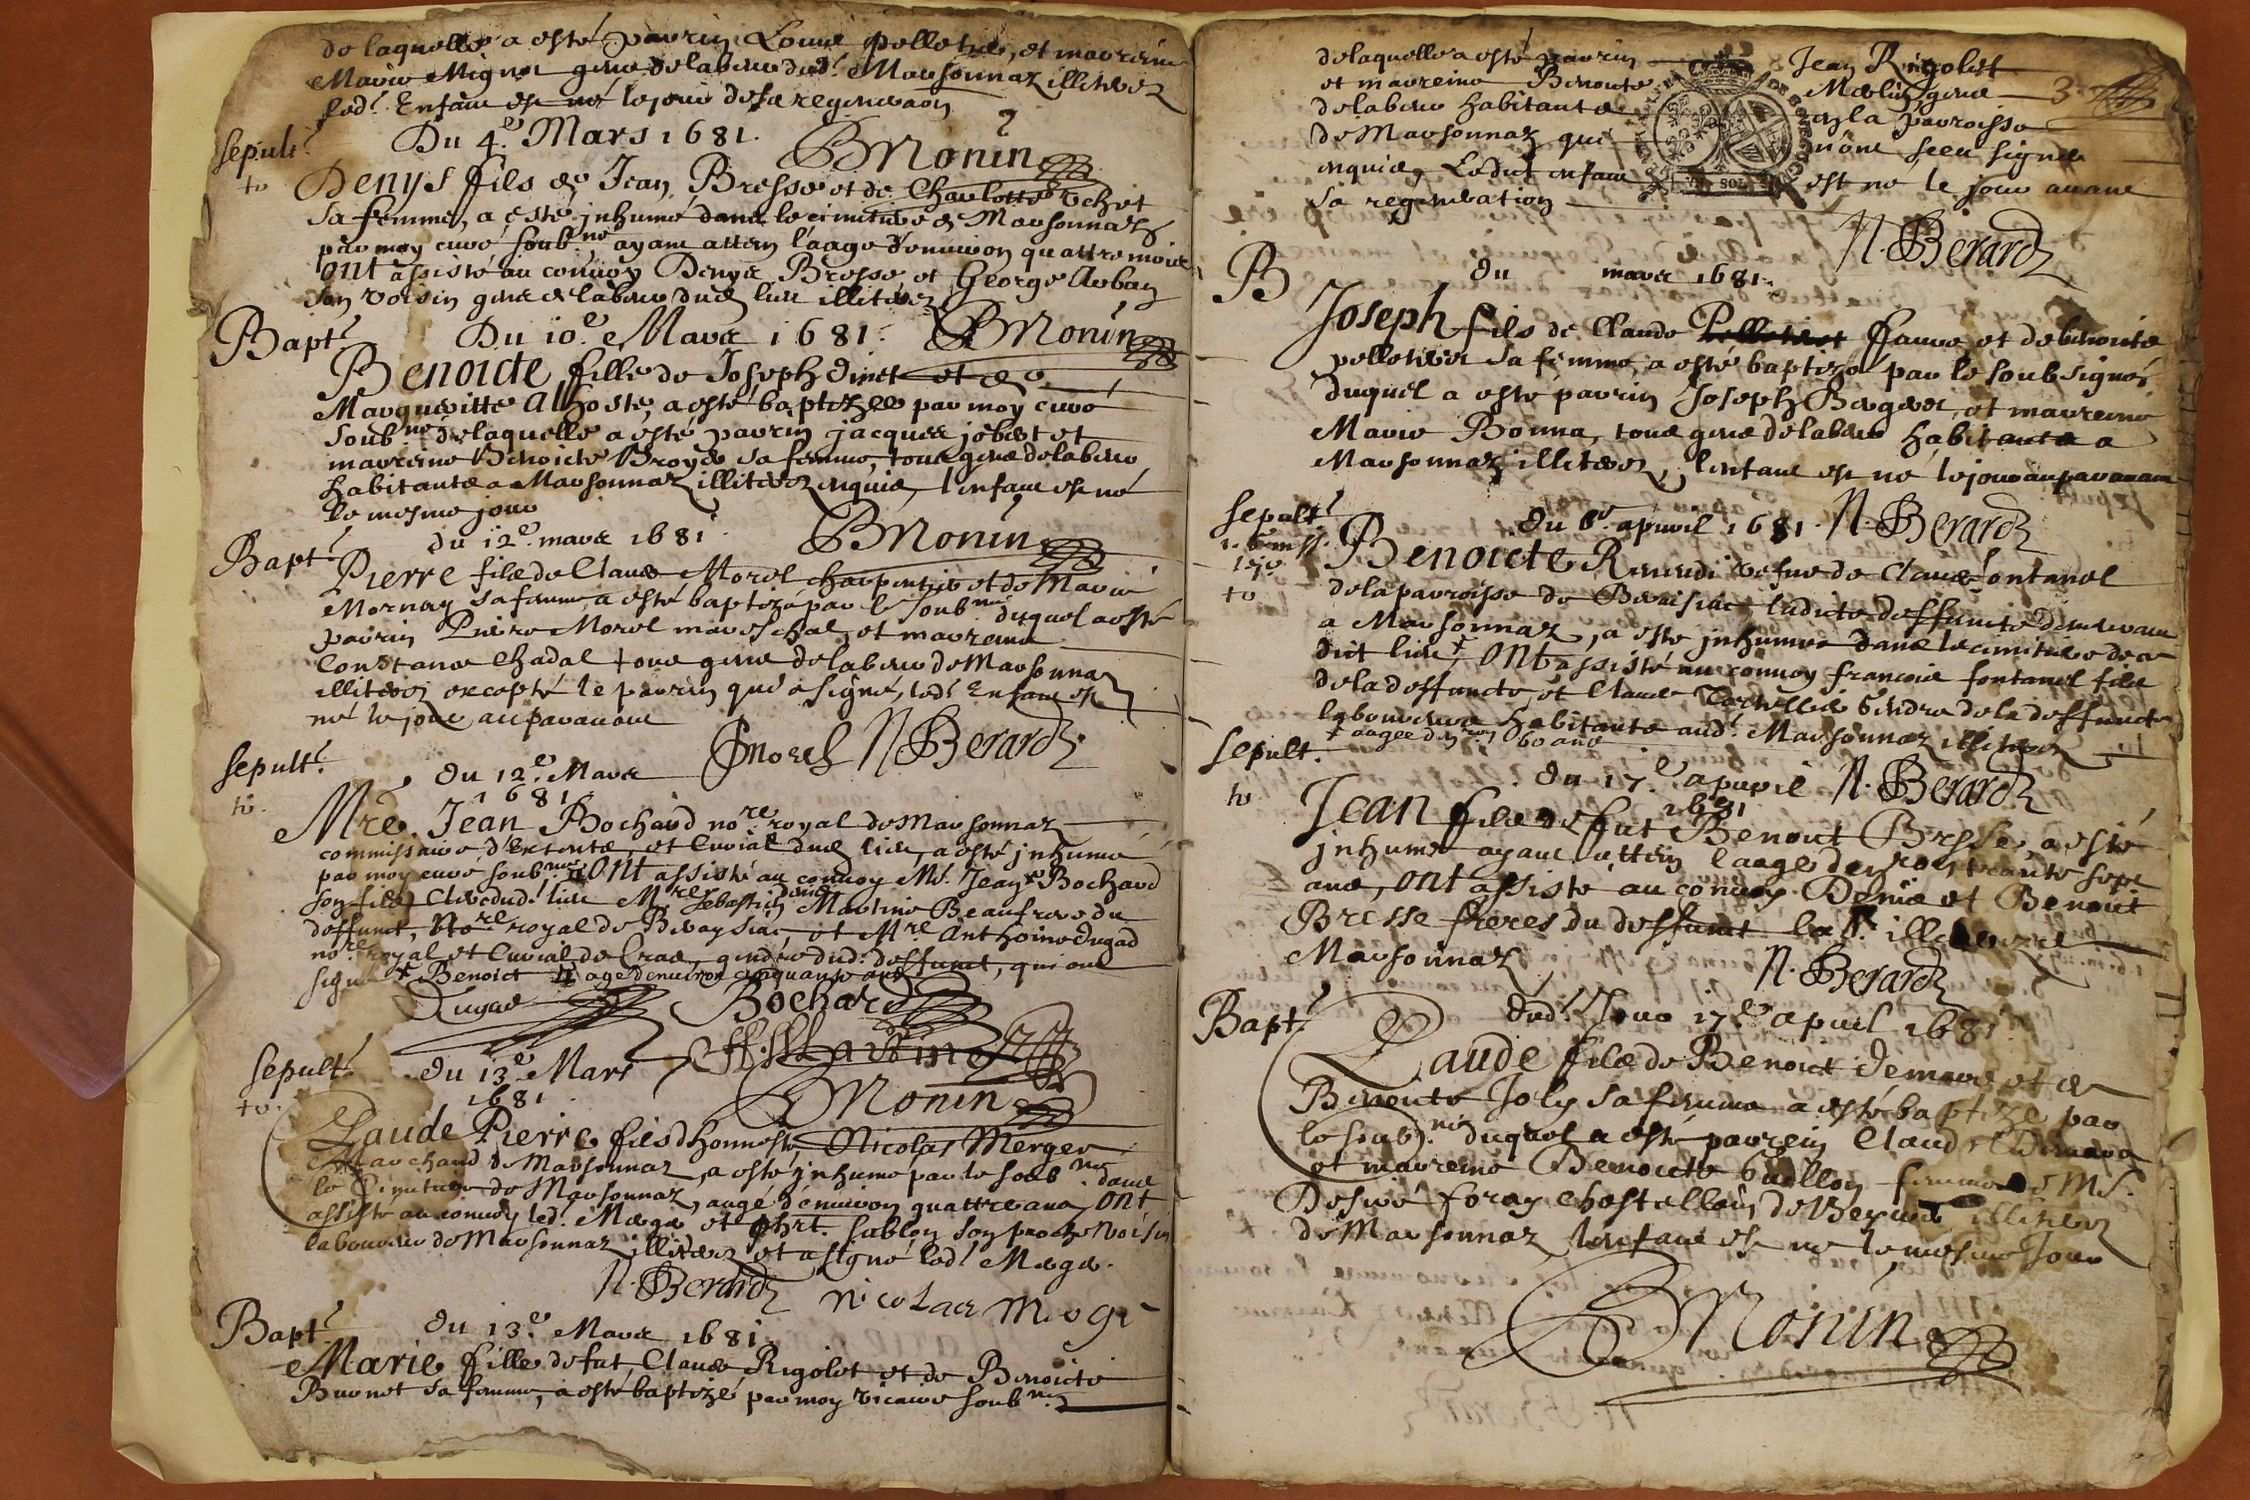 de laquelle a esté parrin Louis pelletier, et marreine
Marie Mignot gens de labeur dud.t Marsonnaz illiterez
led.t Enfant est né le jour de sa regeneraon
Sepult.e Du 4.e Mars 1681.
BMonin
to Denys fils de Jean Bresse et de Charlotte
sa femme, a esté inhumé dans le cimitiere de Marsonnaz
par moy curé soub.né ayant attein l'aage d'environ quattre mois
ont assisté au convoy Denys Bresse et George Auban
son voisin gens de labeur dud. lieu illiterez
Bapt.e Du 10.e Mars 1681. BMonin
Benoicte fille de Joseph Dinet et de
Margueritte Alhoste, a esté baptizée par moy curé
soub.né de laquelle a esté parrin jacques jobert et
marreine Benoicte Broyer sa femme, tous gens de labeur
habitants a Marsonnaz illiterez enquis, l'enfant est né
le mesme jour
Bapt.e du 12.e mars 1681. BMonin
Pierre fils de Claude Morel charpentier et de Marie
Mornay sa femme a esté baptizé par le soub.né duquel a esté
parrin Pierre Morel mareschal, et marreine
Constance Chadal tous gens de labeur de Marsonnaz
illiterez excepté le parrin qui a signé, led.t Enfant est
né le jour auparavant
PMorel N. Berardz
Sepult.e du 12.e Mars
to. 1681
M.re Jean Bochard no.re royal de Marsonnaz
commissaire d'Extentes, et Curial dud. lieu, a esté inhumé
par moy curé soub.né ont assisté au convoy M.s Jean + Bochard
son fils Clerc dud.t lieu M.re Sebastien Martine Beaufrere du
deffunct, No.re royal de Bereysiac, et M.re Anthoine Dugad
no.re royal et Curial de Cras, gendre dud. deffunct, qui ont
signé + Benoict # agé d'environ cinquante ans
Dugad Bochard
Martine
Sepult.e du 13.e Mars
to. 1681 BMonin
Claude Pierre fils d'honneste Nicolas Merger
Marchand de Marsonnaz, a esté inhumé par le soub.né dans
le Cimitiere de Marsonnaz, aagé d'environ quattre ans, ont
assisté au convoy led. Merger et phrt. Sablon son proche voisin
laboureur de Marsonnaz illiterez et a signé led.t Merger.
N. Berardz nicolas
Bapt.e du 13.e Mars 1681.
Marie fille de fut Claude Rigolet et de Benoicte
Buronet sa femme, a esté baptizé par moy vicaire soub.né
de laquelle a esté parrin Jean Rigolet
et marreine Benoite Merlin gens 3
de labeur habitants en la parroisse
de Marsonnaz qui n'ont sceu signer
enquis, Ledict enfant est né le jour avant
sa regeneration
N. Berardz
B du mars 1681.
Joseph fils de Claude Pelletier favre et de benoite
pelletier sa femme, a esté baptizé par le soubsigné
duquel a esté parrin Joseph Berger, et marreine
Marie Bonna, tous gens de labeur habitants a
Marsonnaz illiterez, l'enfant est né le jour auparavant
Sepult.e du 6.e apvril 1681. N. Berardz
to Benoicte Renaudi vefve de Claude fontanel
de la parroisse de Bereisiac, ladicte deffuncte demeurant
a Marsonnaz, a esté inhumée dans le cimitiere de ce
dict lieu +, ont assisté au convoy francois fontanel fils
de la deffuncte, et Claude gendre de la deffuncte
laboureurs habitants aud.t Marsonnaz illiterez
+ aagée d'env.on 60 ans
Sepult. du 17.e apvril N. Berardz
to 1681
Jean fils de fut Benoit Bresse, a esté
inhumé ayant attein l'aage d'environ trante sept
ans, ont assisté au convoy Denis et Benoit
Bresse freres du deffunct illiterez
Marsonnaz
N. Berardz
Bapt.e dud.t Jour 17.e apvril 1681
Claude fils de Benoict Demare et de
Benoite Joly sa femme a esté baptizé par
le soub.né duquel a esté parrein Claude Demare
et marreine Benoicte Guillon femme de M.s
Desiré foray Chastellain de Beyviers illiterez
de Marsonnaz l'enfant est né le mesme Jour
BMonin